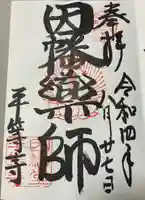 奉拝
令和四年
月廿七日
因幡薬師
平等寺